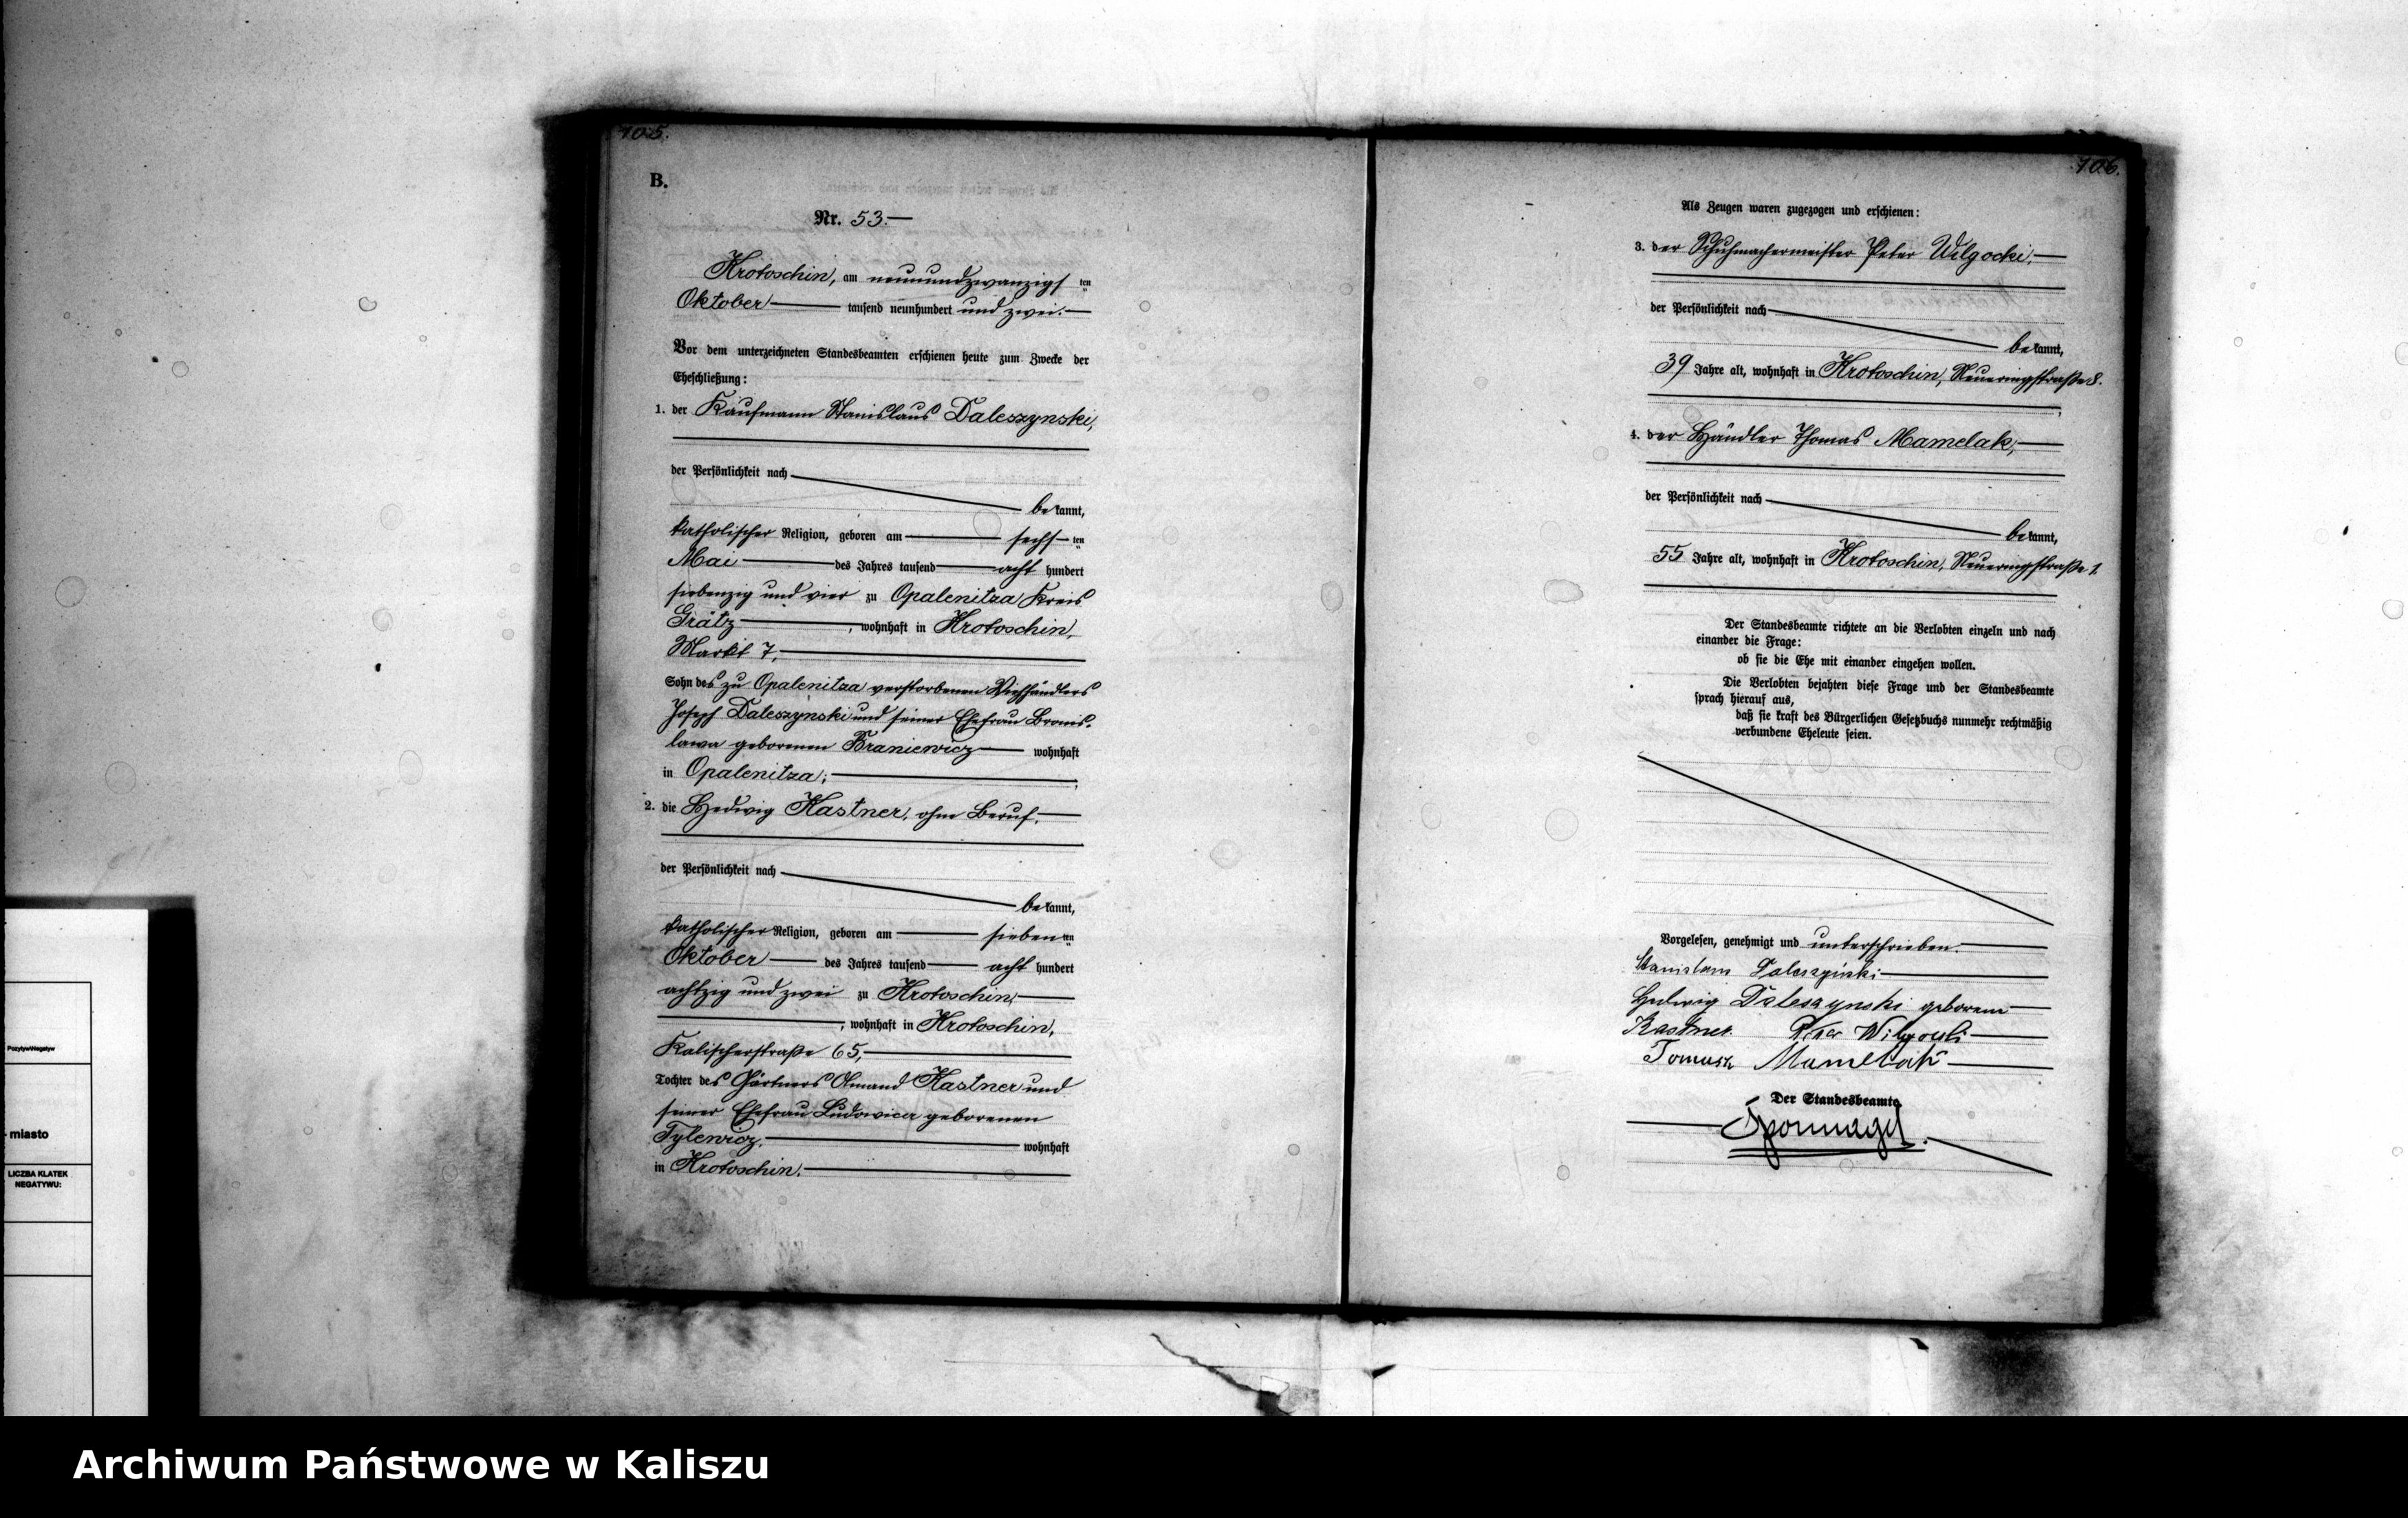 105.
B.
Nr. 53.
Krotoschin, am neunundzwanzigsten
Oktober tausend neunhundert und zwei.
Vor dem unterzeichneten Standesbeamten erschienen heute zum Zwecke der
Eheschließung:
1. der Kaufmann Stanislaus Daleszynski,
der Persönlichkeit nach
bekannt,
katholischer Religion, geboren am sechsten
Mai des Jahres tausend acht hundert
siebenzig und vier zu Opalenitza Kreis
Grätz, wohnhaft in Krotoschin,
Markt 7,
Sohn des zu Opalenitza verstorbenen Viehhändlers
Joseph Daleszynski und seiner Ehefrau Bronis-
lawa geborenen Franiewicz wohnhaft
in Opalenitza;
2. die Hedwig Kastner, ohne Beruf,
der Persönlichkeit nach
bekannt,
katholischer Religion, geboren am siebenten
Oktober des Jahres tausend acht hundert
achtzig und zwei zu Krotoschin,
, wohnhaft in Krotoschin,
Kalischerstraße 65,
Tochter des Gärtners Amand Kastner und
seiner Ehefrau Ludowica geborenen
Tylewicz, wohnhaft
in Krotoschin.
106.
Als Zeugen waren zugezogen und erschienen:
3. der Schuhmachermeister Peter Wilgocki,
der Persönlichkeit nach
bekannt,
39 Jahre alt, wohnhaft in Krotoschin, Neueringstraße 8.
4. der Händler Thomas Mamelak,
der Persönlichkeit nach
bekannt,
55 Jahre alt, wohnhaft in Krotoschin, Neueringstraße 1.
Der Standesbeamte richtete an die Verlobten einzeln und nach
einander die Frage:
ob sie die Ehe mit einander eingehen wollen.
Die Verlobten bejahten diese Frage und der Standesbeamte
sprach hierauf aus,
daß sie kraft des Bürgerlichen Gesetzbuchs nunmehr rechtmäßig
verbundene Eheleute seien.
Vorgelesen, genehmigt und unterschrieben.
Stanislaus Daleszyński
Hedwig Daleszynski geborene
Kastner. Peter Wilgocki
Tomasz Mamellak
Der Standesbeamte
Sponnagel.
Pozytyw/Negatyw
miasto
LICZBA KLATEK
NEGATYWU:
Archiwum Państwowe w Kaliszu